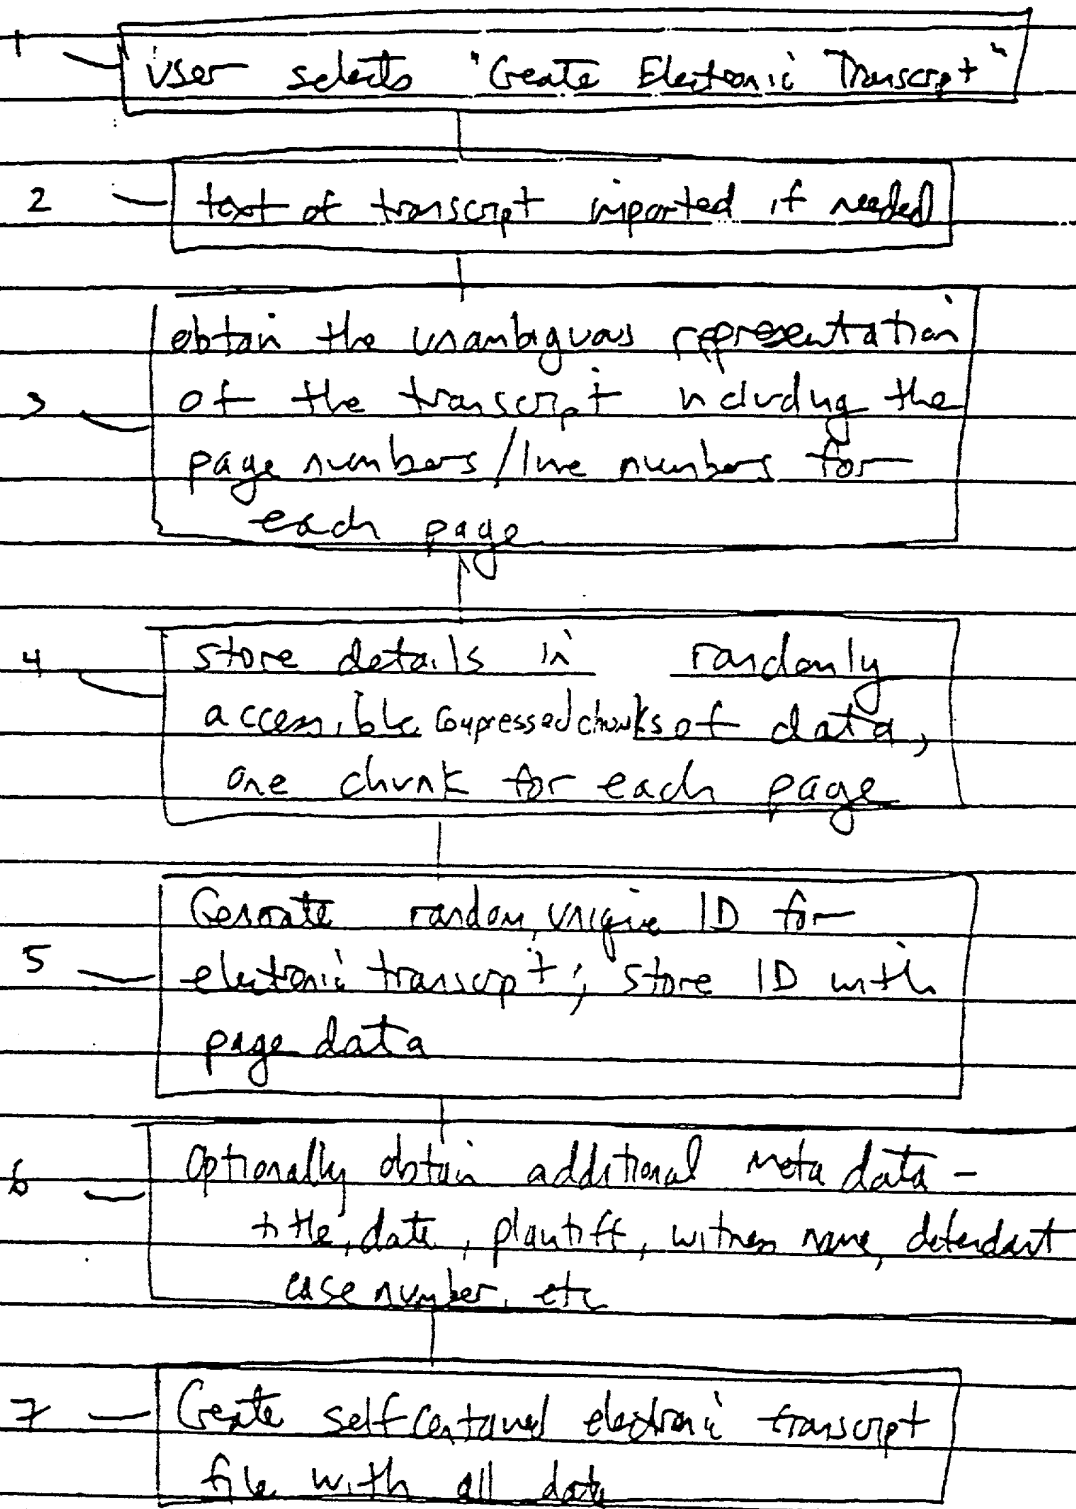 1 User selects "Create Electronic Transcript"
2 text of transcript imported if needed
obtain the unambiguous representation
3 of the transcript including the
page numbers/line numbers for
each page
4 store details in randomly
accessible compressed chunks of data,
one chunk for each page
Generate random, unique ID for
5 electronic transcript; store ID with
page data
6 Optionally obtain additional meta data -
title, date, plaintiff, witness name, defendant
case number, etc
7 Create self contained electronic transcript
file with all data